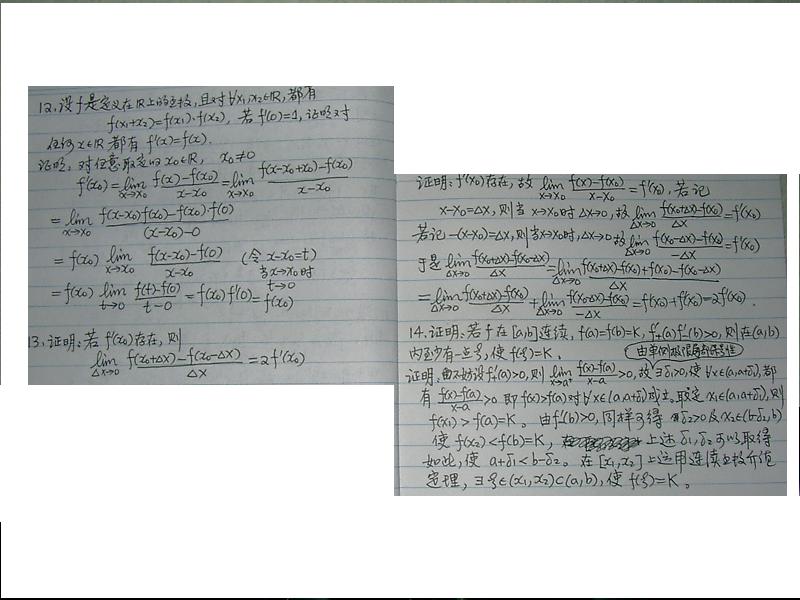 12.设f是定义在R上的函数,且对∀x₁,x₂∈R,都有
f(x₁+x₂)=f(x₁)·f(x₂), 若f'(0)=1,证明对
任何x∈R都有f'(x)=f(x).
证明:对任意取定的x₀∈R, x₀≠0
f'(x₀)=lim_{x→x₀} (f(x)-f(x₀))/(x-x₀)=lim_{x→x₀} (f(x-x₀+x₀)-f(x₀))/(x-x₀)
=lim_{x→x₀} (f(x-x₀)f(x₀)-f(x₀)·f(0))/((x-x₀)-0)
=f(x₀) lim_{x→x₀} (f(x-x₀)-f(0))/(x-x₀) (令x-x₀=t) 当x→x₀时 t→0
=f(x₀) lim_{t→0} (f(t)-f(0))/(t-0)=f(x₀)f'(0)=f(x₀)
13.证明:若f'(x₀)存在,则
lim_{Δx→0} (f(x₀+Δx)-f(x₀-Δx))/Δx=2f'(x₀)
证明:f'(x₀)存在,故lim_{x→x₀} (f(x)-f(x₀))/(x-x₀)=f'(x₀),若记
x-x₀=Δx,则当x→x₀时Δx→0,故lim_{Δx→0} (f(x₀+Δx)-f(x₀))/Δx=f'(x₀)
若记-(x-x₀)=Δx,则当x→x₀时,Δx→0故lim_{Δx→0} (f(x₀-Δx)-f(x₀))/(-Δx)=f'(x₀)
于是lim_{Δx→0} (f(x₀+Δx)-f(x₀-Δx))/Δx=lim_{Δx→0} (f(x₀+Δx)-f(x₀)+f(x₀)-f(x₀-Δx))/Δx
=lim_{Δx→0} (f(x₀+Δx)-f(x₀))/Δx+lim_{Δx→0} (f(x₀-Δx)-f(x₀))/(-Δx)=f'(x₀)+f'(x₀)=2f'(x₀).
14.证明:若f在[a,b]连续,f(a)=f(b)=K,f'₊(a)f'₋(b)>0,则在(a,b)
内至少有一点ξ,使f(ξ)=K. (由单侧极限局部保号性)
证明:不妨设f'₊(a)>0,则lim_{x→a⁺} (f(x)-f(a))/(x-a)>0,故∃δ₁>0,使∀x∈(a,a+δ₁),都
有(f(x)-f(a))/(x-a)>0即f(x)>f(a)对∀x∈(a,a+δ₁)成立,取定x₁∈(a,a+δ₁),则
f(x₁)>f(a)=K。由f'₋(b)>0,同样可得δ₂>0及x₂∈(b-δ₂,b)
使f(x₂)<f(b)=K, 上述δ₁,δ₂可以取得
如此,使a+δ₁<b-δ₂。在[x₁,x₂]上运用连续函数介值
定理,∃ξ∈(x₁,x₂)⊂(a,b),使f(ξ)=K。